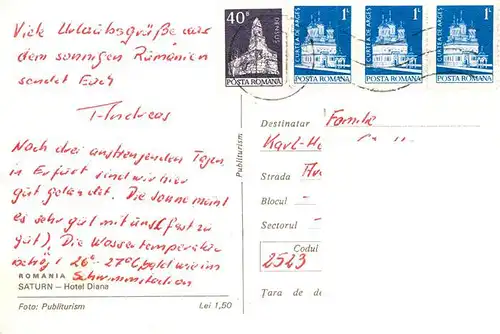 Viele Urlaubsgrüße aus
dem sonnigen Rumänien
sendet Euch
Andreas
Nach drei anstrengenden Tagen
in Erfurt sind wir hier
gut gelandet. Die Sonne meint
es sehr gut mit uns (fast zu
gut). Die Wassertemperatur
beträgt 26°-27°C, bald wie im
Schwimmstadion
ROMANIA
SATURN – Hotel Diana
Foto: Publiturism
Lei 1,50
Publiturism
40B
DENSUȘ
POSTA ROMANA
1L
CURTEA DE ARGEȘ
POSTA ROMANA
1L
CURTEA DE ARGEȘ
POSTA ROMANA
1L
CURTEA DE ARGEȘ
POSTA ROMANA
Destinatar Familie
Karl-
Strada
Blocul –
Sectorul –
Codul
2523
Țara de